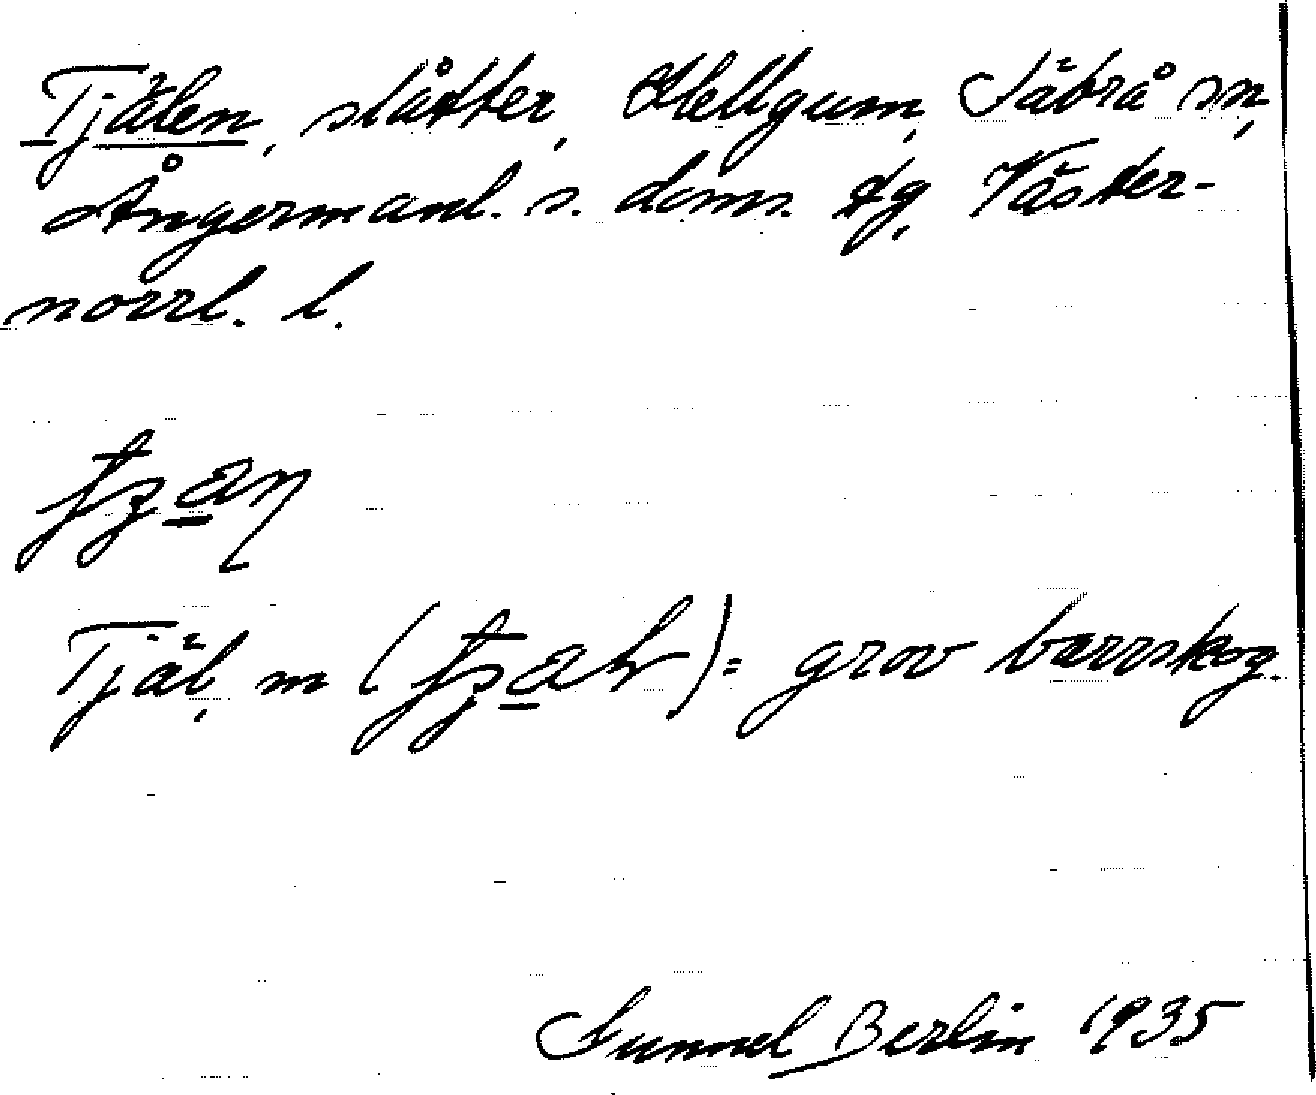 Tjälen, slåtter, Hellgum, Säbrå sn,
Ångermanl. s. doms. tg, Väster-
norrl. l.
Tjäl, m ( ) = grov barrskog.
Gunnel Berlin 1935